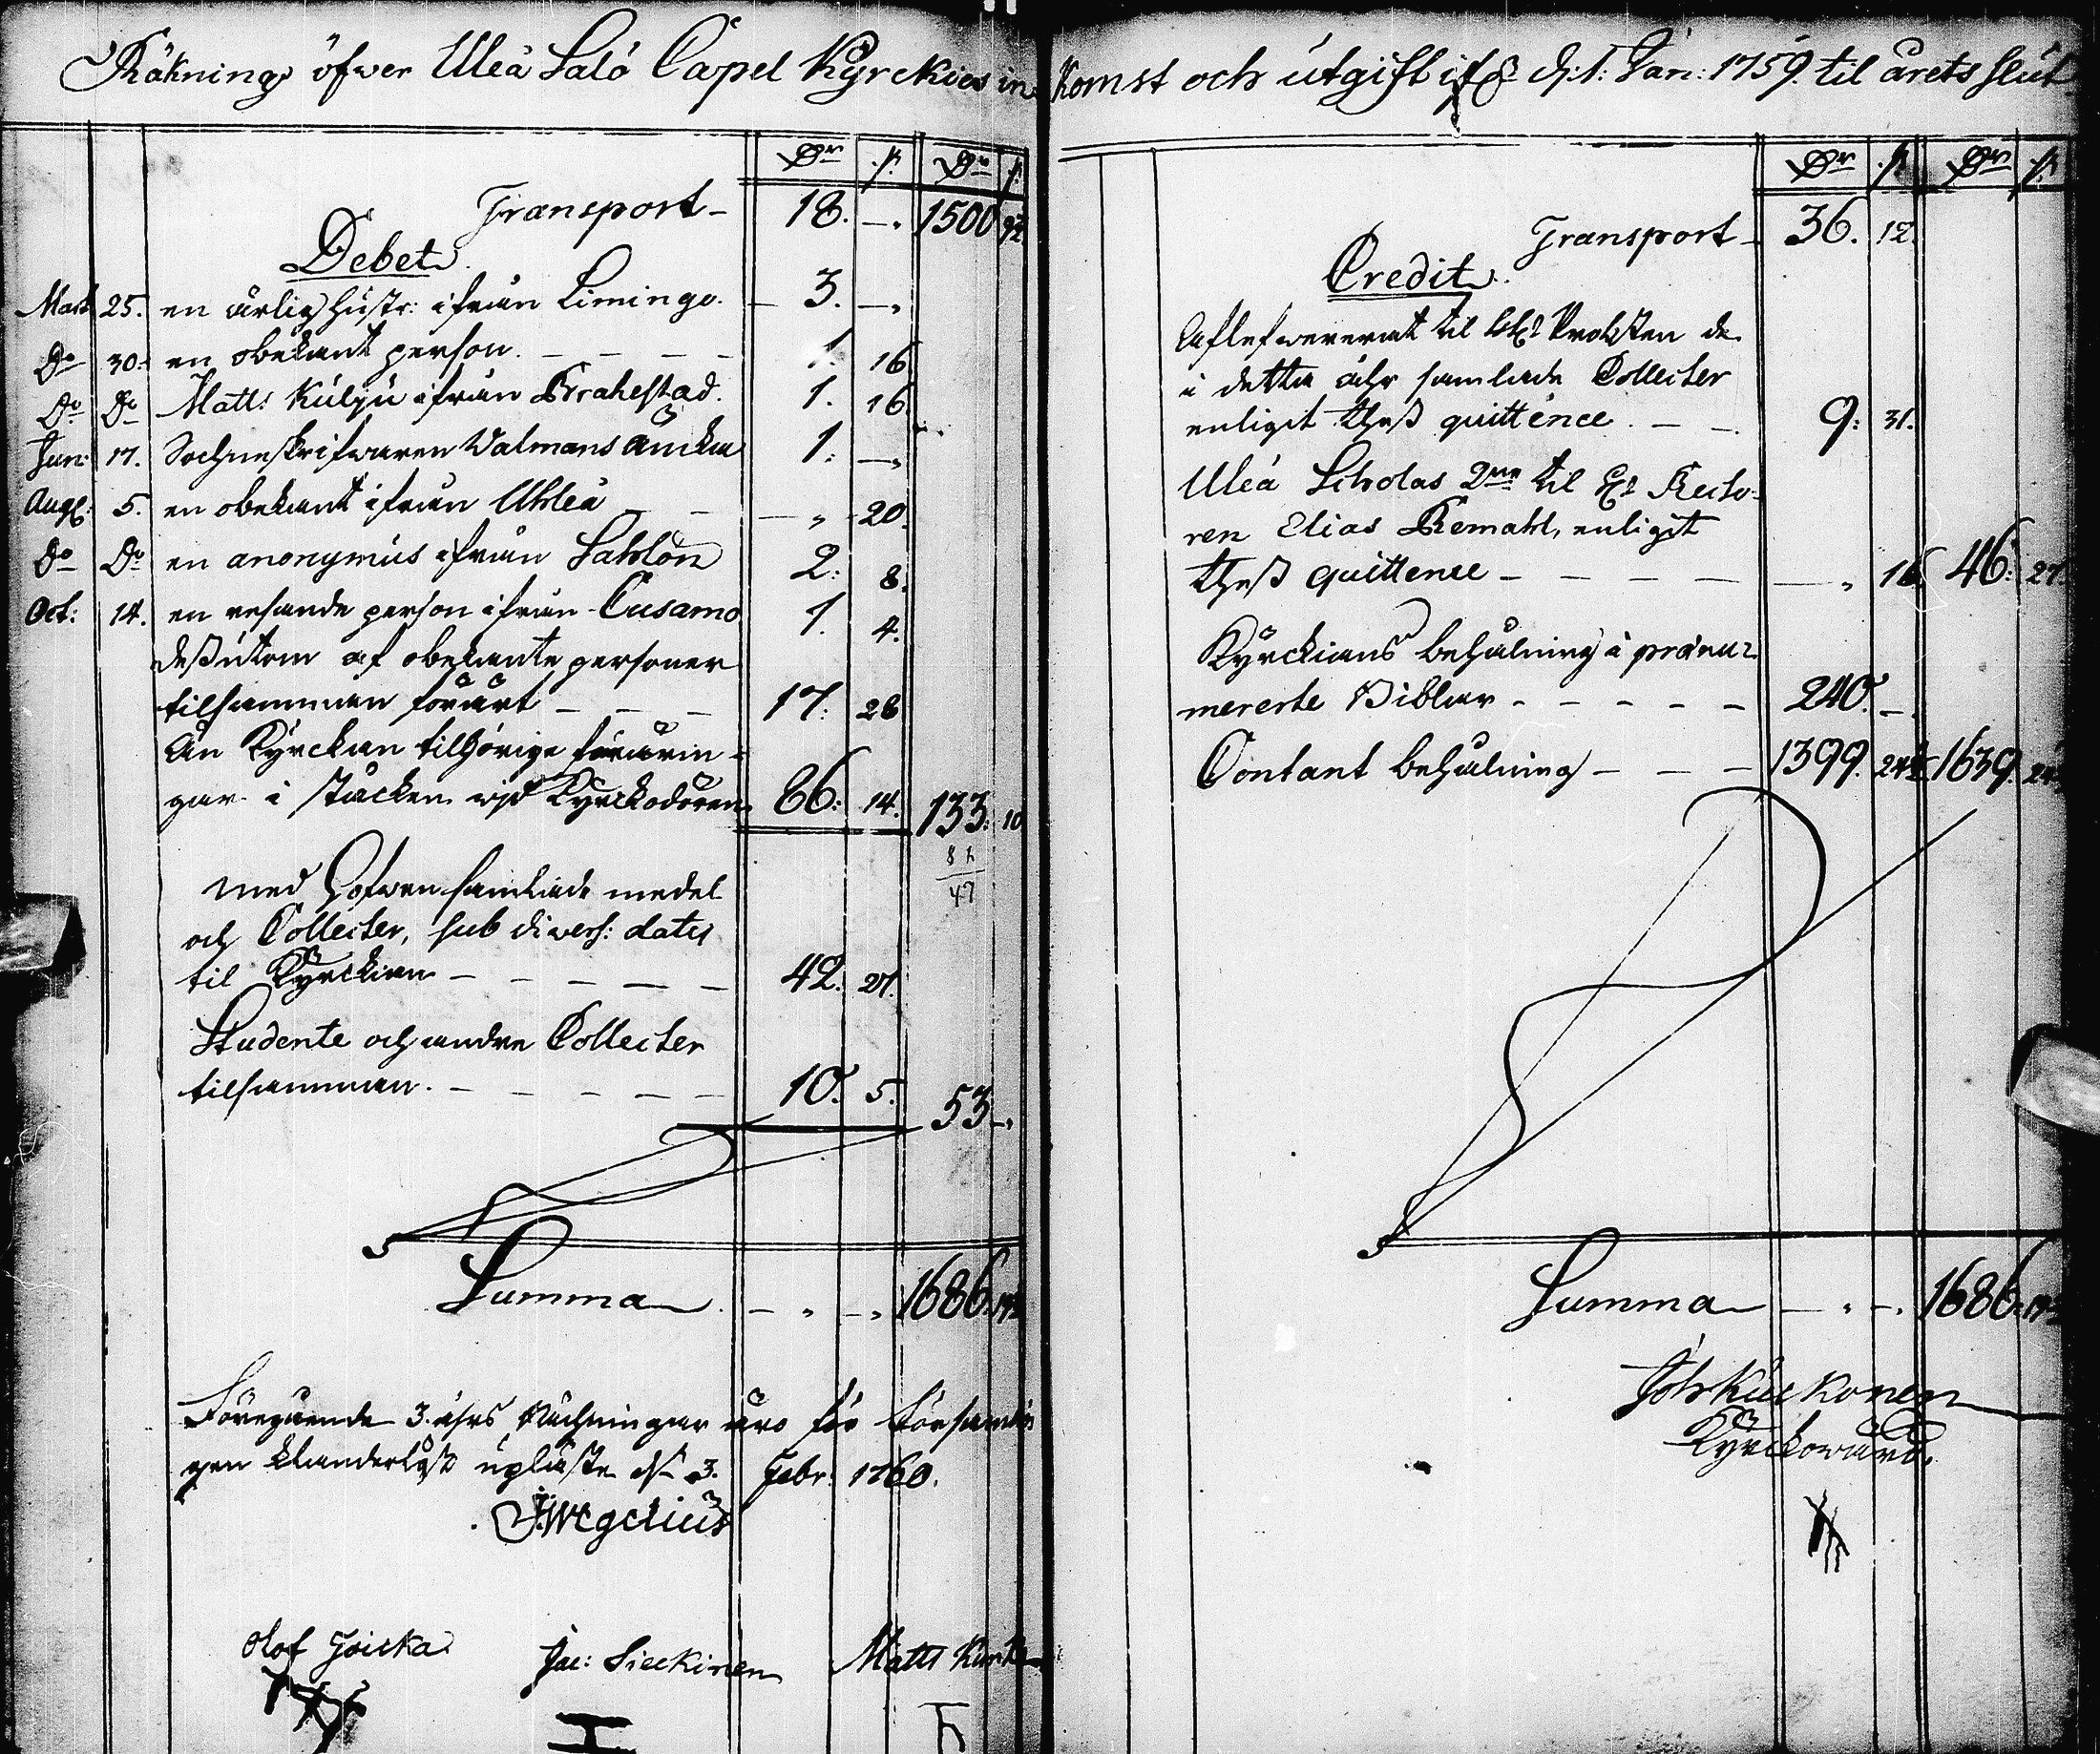 Räkning öfwer Uleå Salo Capel Kyrckios inkomst och utgift ifr. d. 1. Jan: 1759. til årets slut
Dr p. Dr p.
Transport - 18. -. 1500 9½
Debet.
Mart 25. en ärlig hustr: ifrån Limingo. - 3. -.
Do 30. en obekant person. - - - - 1. 16
Do Do Matt: Kulju ifrån Brahestad. 1. 16.
Jun: 17. Sochneskrifwaren Walmans änckia 1. -.
Aug: 5. en obekant ifrån Uhleå - - „ 20.
Do Do en anonymus ifrån Sahlon 2: 8.
Oct: 14. en resande person ifrån Cusamo 1. 4.
dessutom af obekante personer
tilsamman förärt - - - 17: 28
Än Kyrckan tilhörige förärin-
gar i stäcken wid Kyrckodören 86: 14. 133: 10
47
med Hofwen samlade medel
och Collecter, sub divers: datis
til Kyrckian - - - - - 42: 27.
Studente och andre Collecter
tilsamman. - - - - - 10. 5. 53 -.
Summa. - „ -. 1686. 19½
Föregående 3. åhrs Räckningar äro för Församl
gen klanderlöst upläste d. 3. Febr: 1760.
J: Wegelius
Olof Joicka Jac: Sieckinen Matts
Dr p. Dr p.
Transport - 36. 12.
Credit.
Aflefwererat til Hr Probsten de
i detta åhr samlade Collecter
enligit thess quittence. - - 9: 31.
Uleå Scholas til Hr Recto-
ren Elias Remahl, enligit
thess quittence - - - - - „ 16. 46: 27.
Kyrckians behålning i prænu-
mererte Biblar - - - - - 240. -
Contant behålning - - - 1399. 24½ 1639. 24½
Summa - . -. 1686. 19½
Joh Kuckonen
Kyrckowärd.